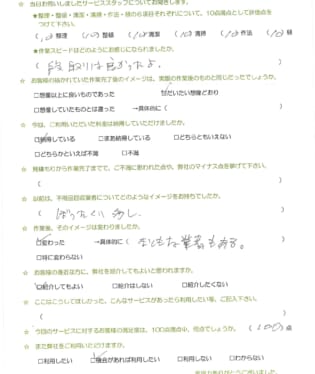 ☆ 当日お伺いしましたサービススタッフについてお聞きします。
★整理・整頓・清潔・清掃・作法・躾の6項目それぞれについて、10点満点として評価点を
つけて下さい。
(10) 整理 (10) 整頓 (10) 清潔 (10) 清掃 (10) 作法 (10) 躾
★作業スピードはどのようにお感じになられましたか。
( 段取りは良かったよ。 )
☆ お客様の描かれていた作業完了後のイメージは、実際の作業後のものと同じだったでしょうか。
□想像以上に良いものであった ☑だいたい想像どおり
□想像していたものとは違った →具体的に( )
☆ 今回、ご利用いただいた料金は納得していただけましたか。
☑納得している □まあ納得している □どちらともいえない
□どちらかといえば不満 □不満
☆ 見積もりから作業完了までで、ご不満に思われた点や、弊社のマイナス点を挙げて下さい。
( )
☆ 以前は、不用品回収業者についてどのようなイメージをお持ちでしたか。
( ぼったくり 多し. )
☆ 作業後、そのイメージは変わりましたか。
☑変わった →具体的に( まともな業者もある。 )
□特に変わらない
☆ お客様の身近な方に、弊社を紹介してもよいと思われますか。
☑紹介してもよい □紹介はしない □紹介したくない
☆ ここはこうしてほしかった、こんなサービスがあったら利用したい等、ご記入下さい。
( )
☆ 今回のサービスに対するお客様の満足度は、100点満点中、何点でしょうか。 (100)点
☆ また弊社をご利用いただけますか。
□利用したい ☑機会があれば利用したい □利用しない □わからない